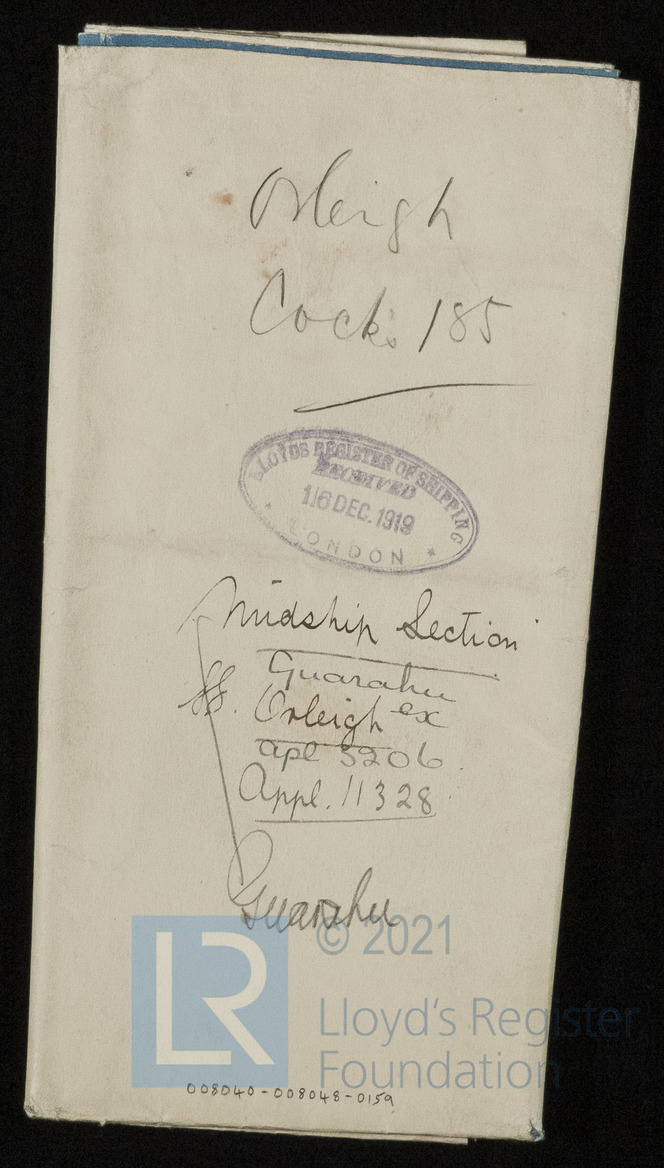 Orleigh
Cocks 185
LLOYDS REGISTER OF SHIPPING
RECEIVED
16 DEC. 1919
LONDON
Midship Section
Guarahu
ss. Orleigh ex
apl 3206.
Appl. 11328
Guarahu
LR
© 2021
Lloyd's Register
Foundation
008040-008048-0159